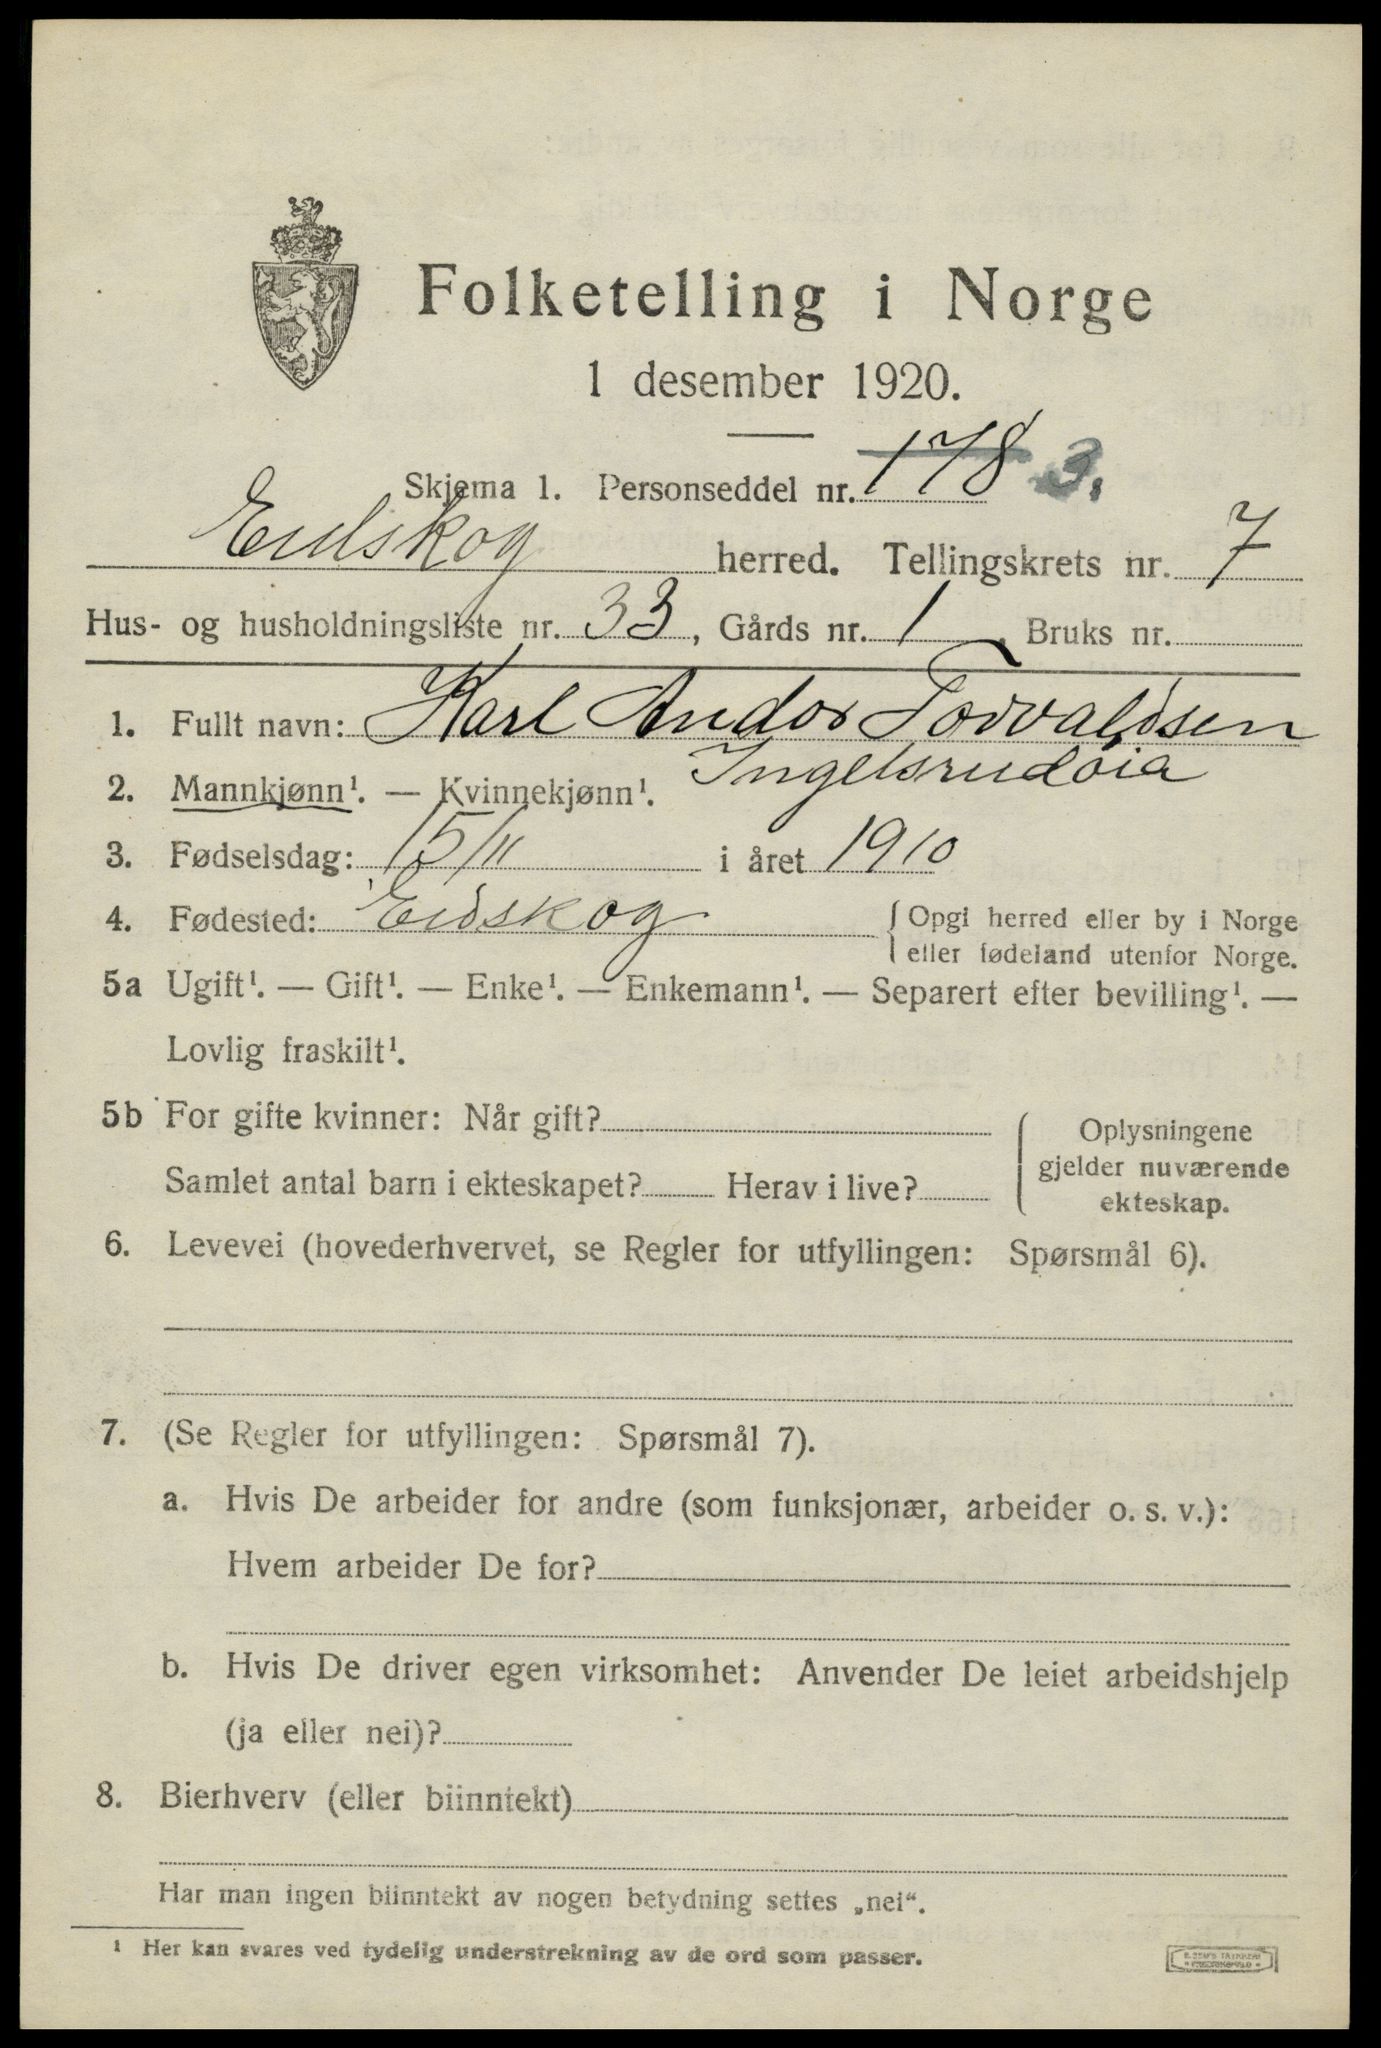 Folketelling i Norge
1 desember 1920.
Skjema 1. Personseddel nr. 178 3.
Eidskog herred. Tellingskrets nr. 7
Hus- og husholdningsliste nr. 33, Gårds nr. 1, Bruks nr.
1. Fullt navn: Karl Andor Torvaldsen
Ingelsrudøia
2. Mannkjønn¹. — Kvinnekjønn¹.
3. Fødselsdag: 15/11 i året 1910
4. Fødested: Eidskog { Opgi herred eller by i Norge
eller fødeland utenfor Norge.
5a Ugift¹. — Gift¹. — Enke¹. — Enkemann¹. — Separert efter bevilling¹. —
Lovlig fraskilt¹.
5b For gifte kvinner: Når gift? { Oplysningene
gjelder nuværende
Samlet antal barn i ekteskapet? Herav i live?
ekteskap.
6. Levevei (hovederhvervet, se Regler for utfyllingen: Spørsmål 6).
7. (Se Regler for utfyllingen: Spørsmål 7).
a. Hvis De arbeider for andre (som funksjonær, arbeider o. s. v.):
Hvem arbeider De for?
b. Hvis De driver egen virksomhet: Anvender De leiet arbeidshjelp
(ja eller nei)?
8. Bierhverv (eller biinntekt)
Har man ingen biinntekt av nogen betydning settes „nei“.
¹ Her kan svares ved tydelig understrekning av de ord som passer.